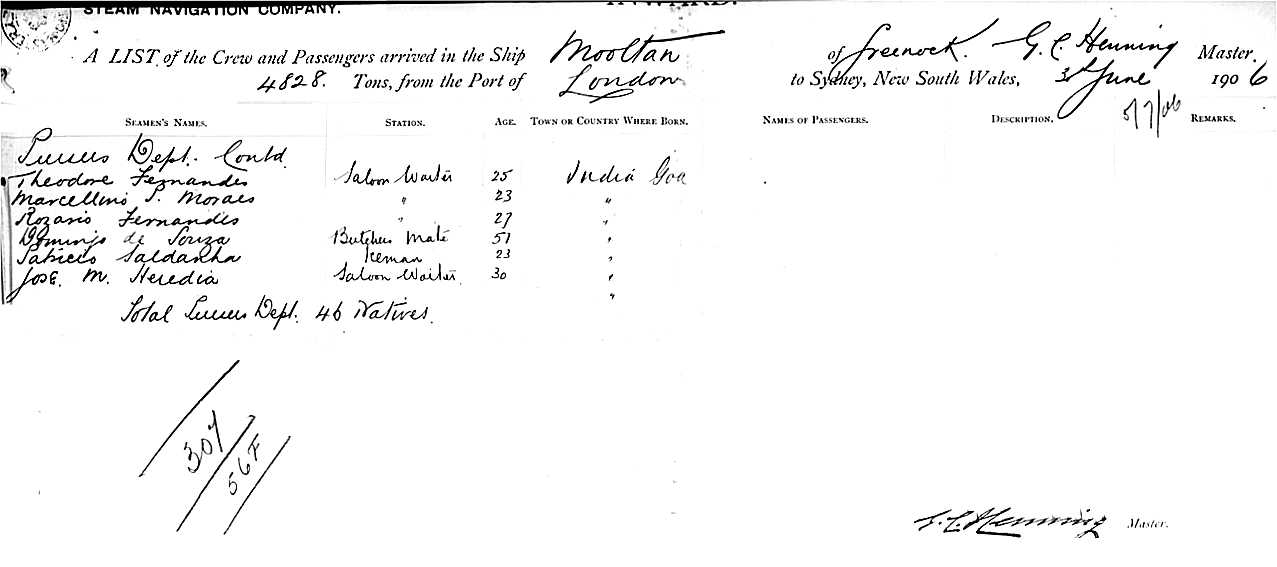 STEAM NAVIGATION COMPANY.
INWARD.
A LIST of the Crew and Passengers arrived in the Ship Mooltan of Greenock. G. C. Henning Master.
4828. Tons, from the Port of London to Sydney, New South Wales, June 1906
5/7/06
SEAMEN'S NAMES. STATION. AGE. TOWN OR COUNTRY WHERE BORN. NAMES OF PASSENGERS. DESCRIPTION. REMARKS.
Pursers Dept. Contd
Theodore Fernandes Saloon Waiter 25 India Goa
Marcellino P. Moraes " 23 "
Rozario Fernandes " 27 "
Domingo de Souza Butchers Mate 51 "
Patricio Saldanha Iceman 23 "
Jose. M. Heredia Saloon Waiter. 30 "
"
Total Pursers Dept. 46 Natives.
307
56F
G. C. Henning Master.